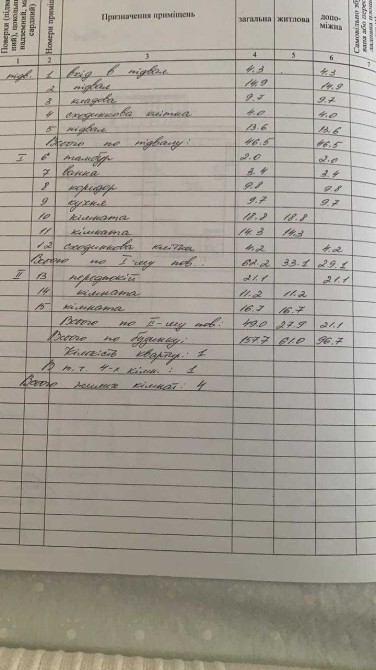 Поверхи (підва
ний), цокольн
надземний, ма
сардний)
Номери приміщ
Призначення приміщень
загальна житлова
допо-
міжна
1 2 3 4 5 6 7
підв. 1 вхід в підвал 4.3 4.3
2 підвал 14.9 14.9
3 кладова 9.7 9.7
4 сходинкова клітка 4.0 4.0
5 підвал 13.6 13.6
Всього по підвалу: 46.5 46.5
I 6 тамбур 2.0 2.0
7 ванна 3.4 3.4
8 коридор 9.8 9.8
9 кухня 9.7 9.7
10 кімната 18.8 18.8
11 кімната 14.3 14.3
12 сходинкова клітка 4.2 4.2
Всього по I-му пов. 62.2 33.1 29.1
II 13 передпокій 21.1 21.1
14 кімната 11.2 11.2
15 кімната 16.7 16.7
Всього по II-му пов: 49.0 27.9 21.1
Всього по будинку: 157.7 61.0 96.7
Кількість квартир: 1
В т.ч. 4-х кімн.: 1
Всього жилих кімнат: 4